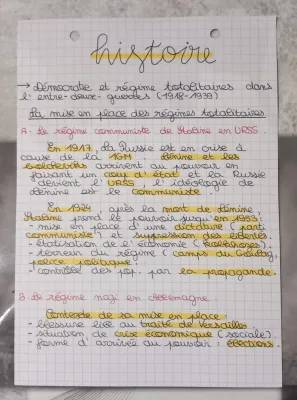 histoire
→ Démocratie et régime totalitaires dans
l'entre-deux-guerres (1918-1939)
La mise en place des régimes totalitaires
A - Le régime communiste de Staline en URSS
En 1917, La Russie est en crise à
cause de la 1GM. Lénine et les
bolcheviks arrivent au pouvoir en
faisant un coup d'état et la Russie
devient l'URSS. L'idéologie de
Lénine est le communiste.
En 1924, après la mort de Lénine
Staline prend le pouvoir jusqu'en 1953:
- mise en place d'une dictature (parti
communiste) et suppression des libertés
- étatisation de l'économie (kolkhozes).
- terreur du régime (camps du Goulag,
police politique.
- contrôle des pop. par la propagande.
B - Le régime nazi en Allemagne
Contexte de sa mise en place
- blessure liée au traité de Versailles
- situation de crise économique (sociale)
- forme d'arrivée au pouvoir : élections.